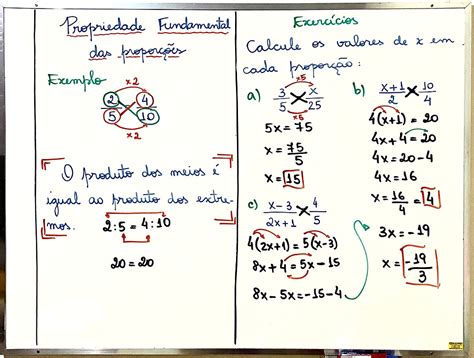 Propriedade Fundamental
das proporções
Exemplo
x2
2/5 = 4/10
x2
O produto dos meios é
igual ao produto dos extre-
mos. 2:5 = 4:10
20 = 20
Exercícios
Calcule os valores de x em
cada proporção:
a) 3/5 = x/25
x5
x5
5x = 75
x = 75/5
x = 15
b) x+1/2 = 10/4
4(x+1) = 20
4x+4 = 20
4x = 20-4
4x = 16
x = 16/4 = 4
c) x-3/2x+1 = 4/5
4(2x+1) = 5(x-3)
8x+4 = 5x-15
8x-5x = -15-4
3x = -19
x = -19/3